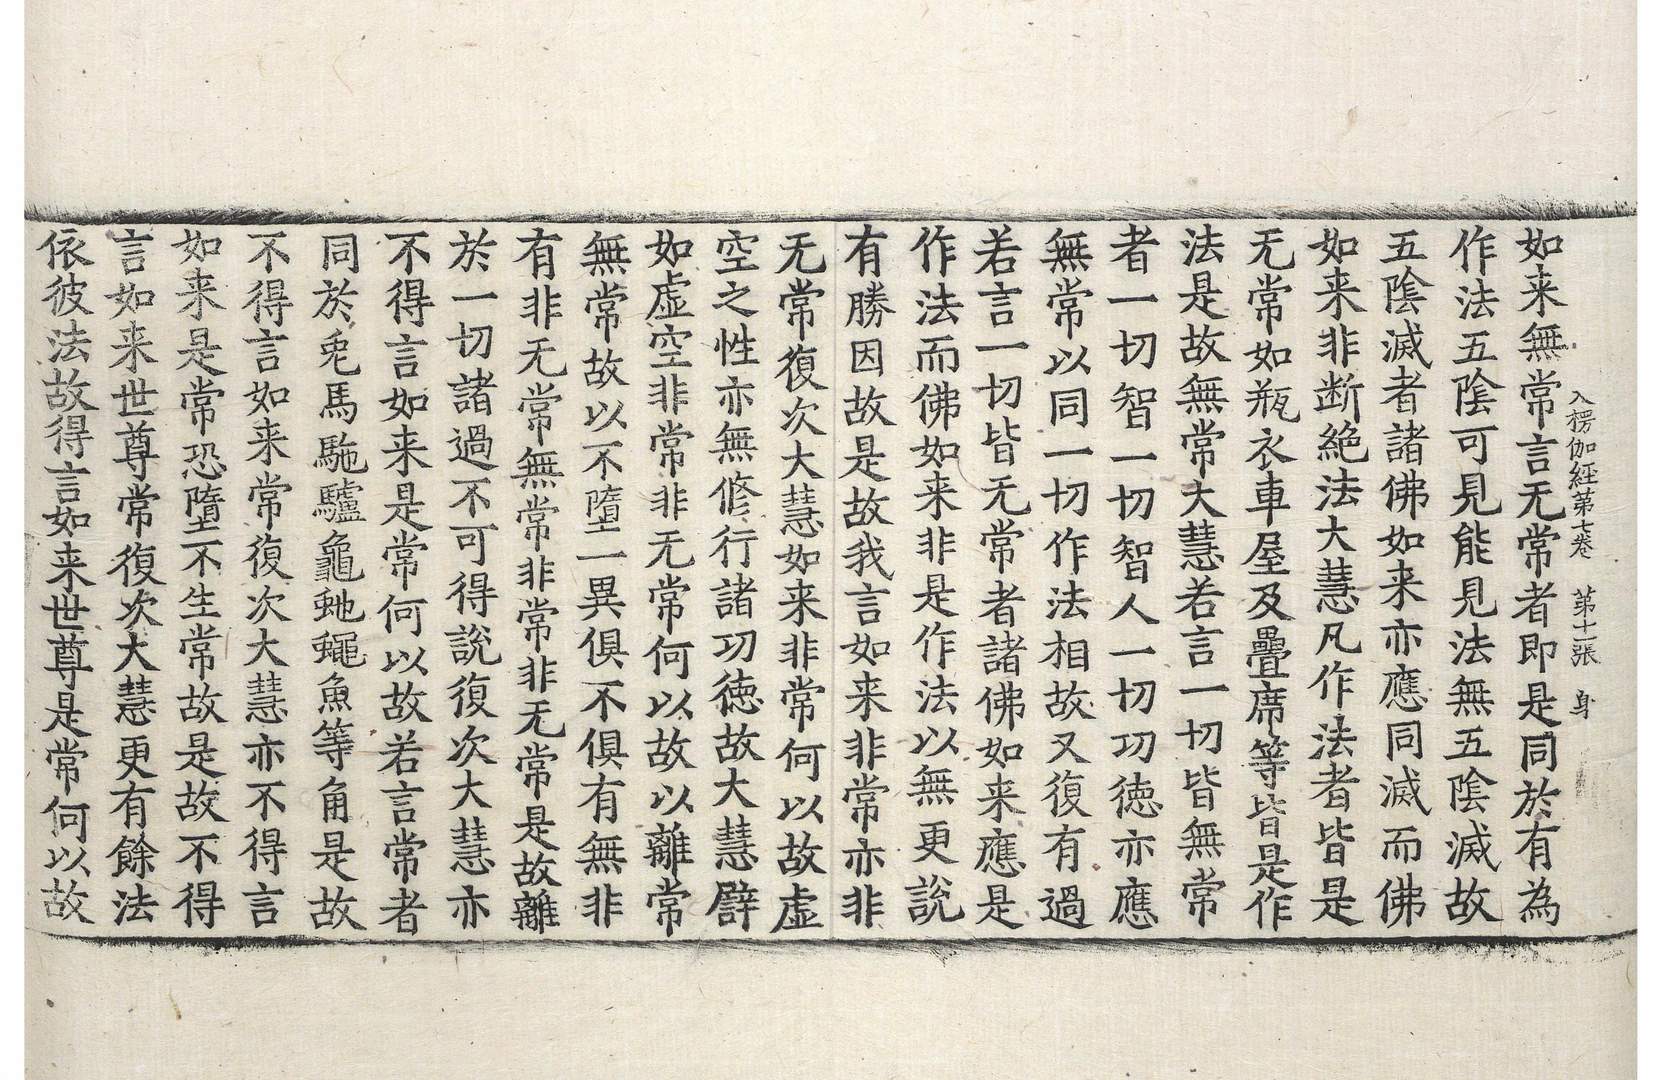 入楞伽經第七卷　第十一張　身
如来無常言无常者即是同於有為
作法五陰可見能見法無五陰滅故
五陰滅者諸佛如来亦應同滅而佛
如来非断絶法大慧凡作法者皆是
无常如瓶衣車屋及疊席等皆是作
法是故無常大慧若言一切皆無常
者一切智一切智人一切功徳亦應
無常以同一切作法相故又復有過
若言一切皆无常者諸佛如来應是
作法而佛如来非是作法以無更說
有勝因故是故我言如来非常亦非
无常復次大慧如来非常何以故虛
空之性亦無修行諸功徳故大慧譬
如虛空非常非无常何以故以離常
無常故以不墮一異俱不俱有無非
有非无常無常非常非无常是故離
於一切諸過不可得說復次大慧亦
不得言如来是常何以故若言常者
同於兎馬駞驢龜虵蠅魚等角是故
不得言如来常復次大慧亦不得言
如来是常恐墮不生常故是故不得
言如来世尊常復次大慧更有餘法
依彼法故得言如来世尊是常何以故